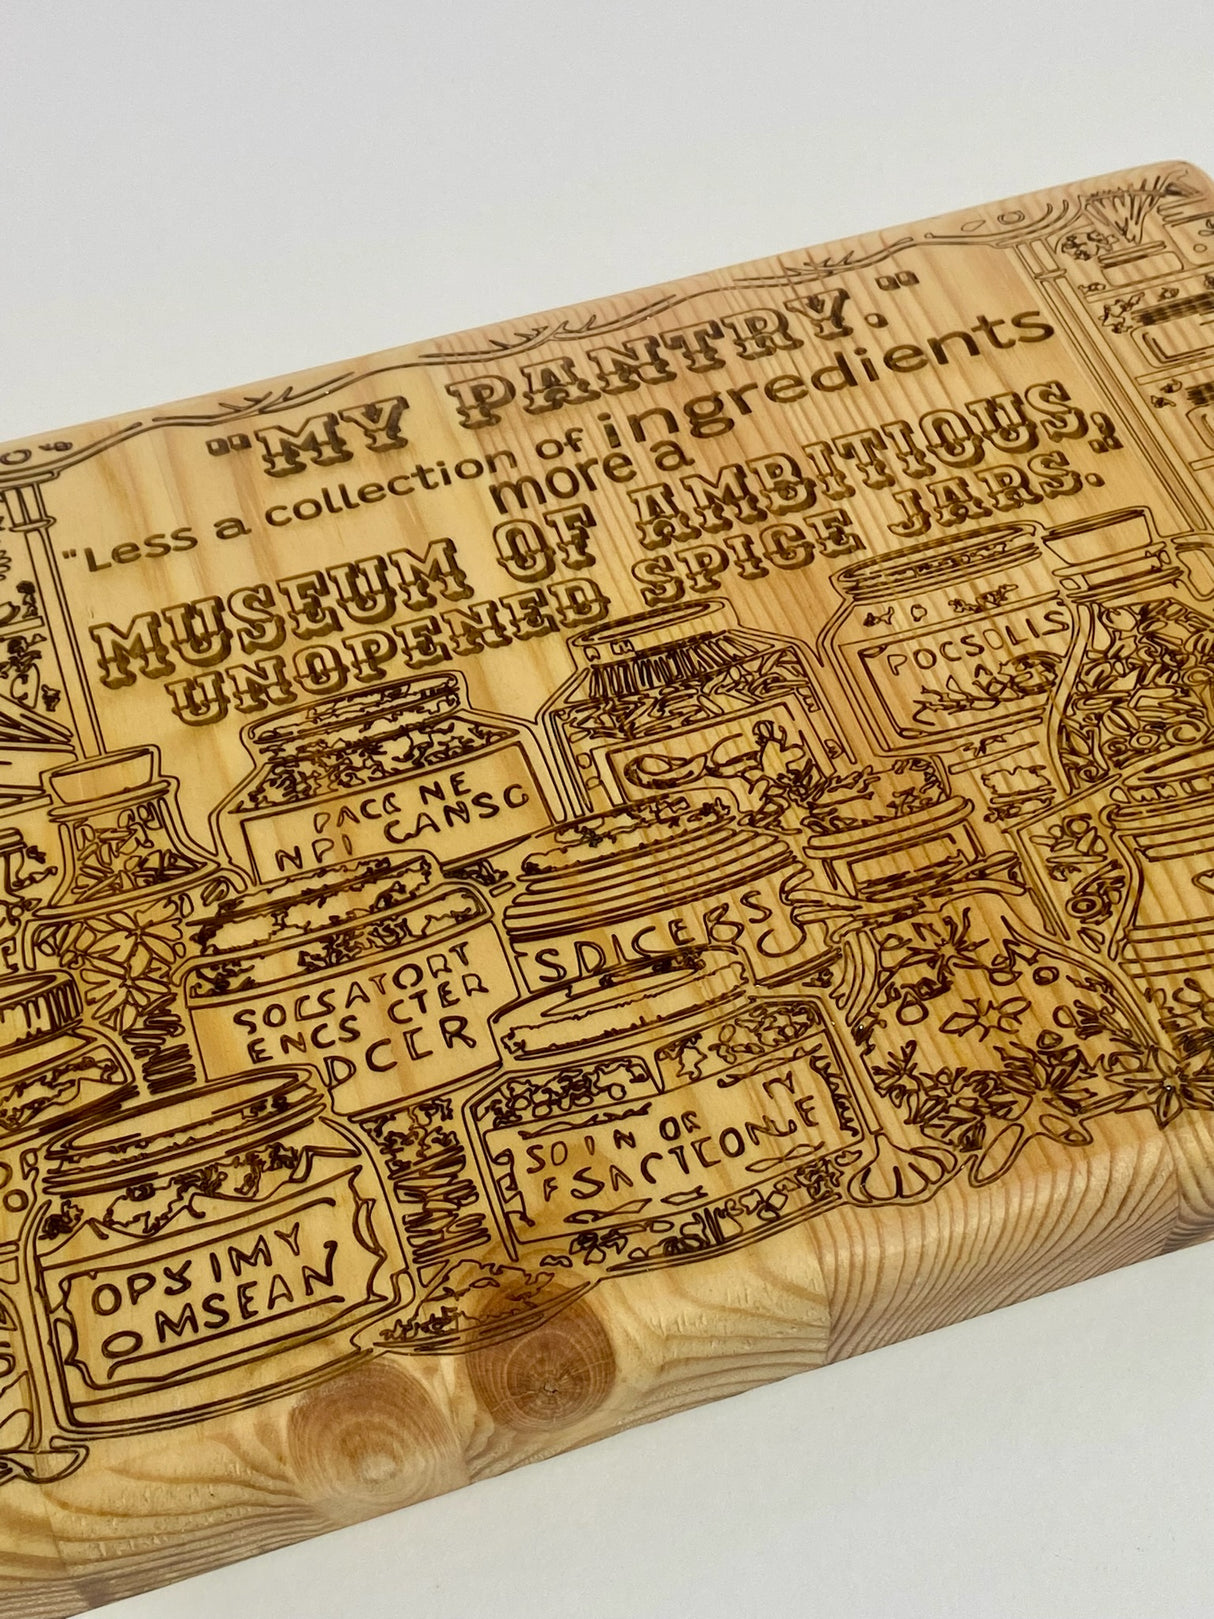 "MY PANTRY."
"Less a collection of ingredients
more a
MUSEUM OF AMBITIOUS,
UNOPENED SPICE JARS."
POCSOLIS
PACC NE
NPI CANSG
SDICERS
SOCSATORT
ENCS CTER
DCCR
SO IN OR
FSACTCONLE
OPSIMY
OMSEAN